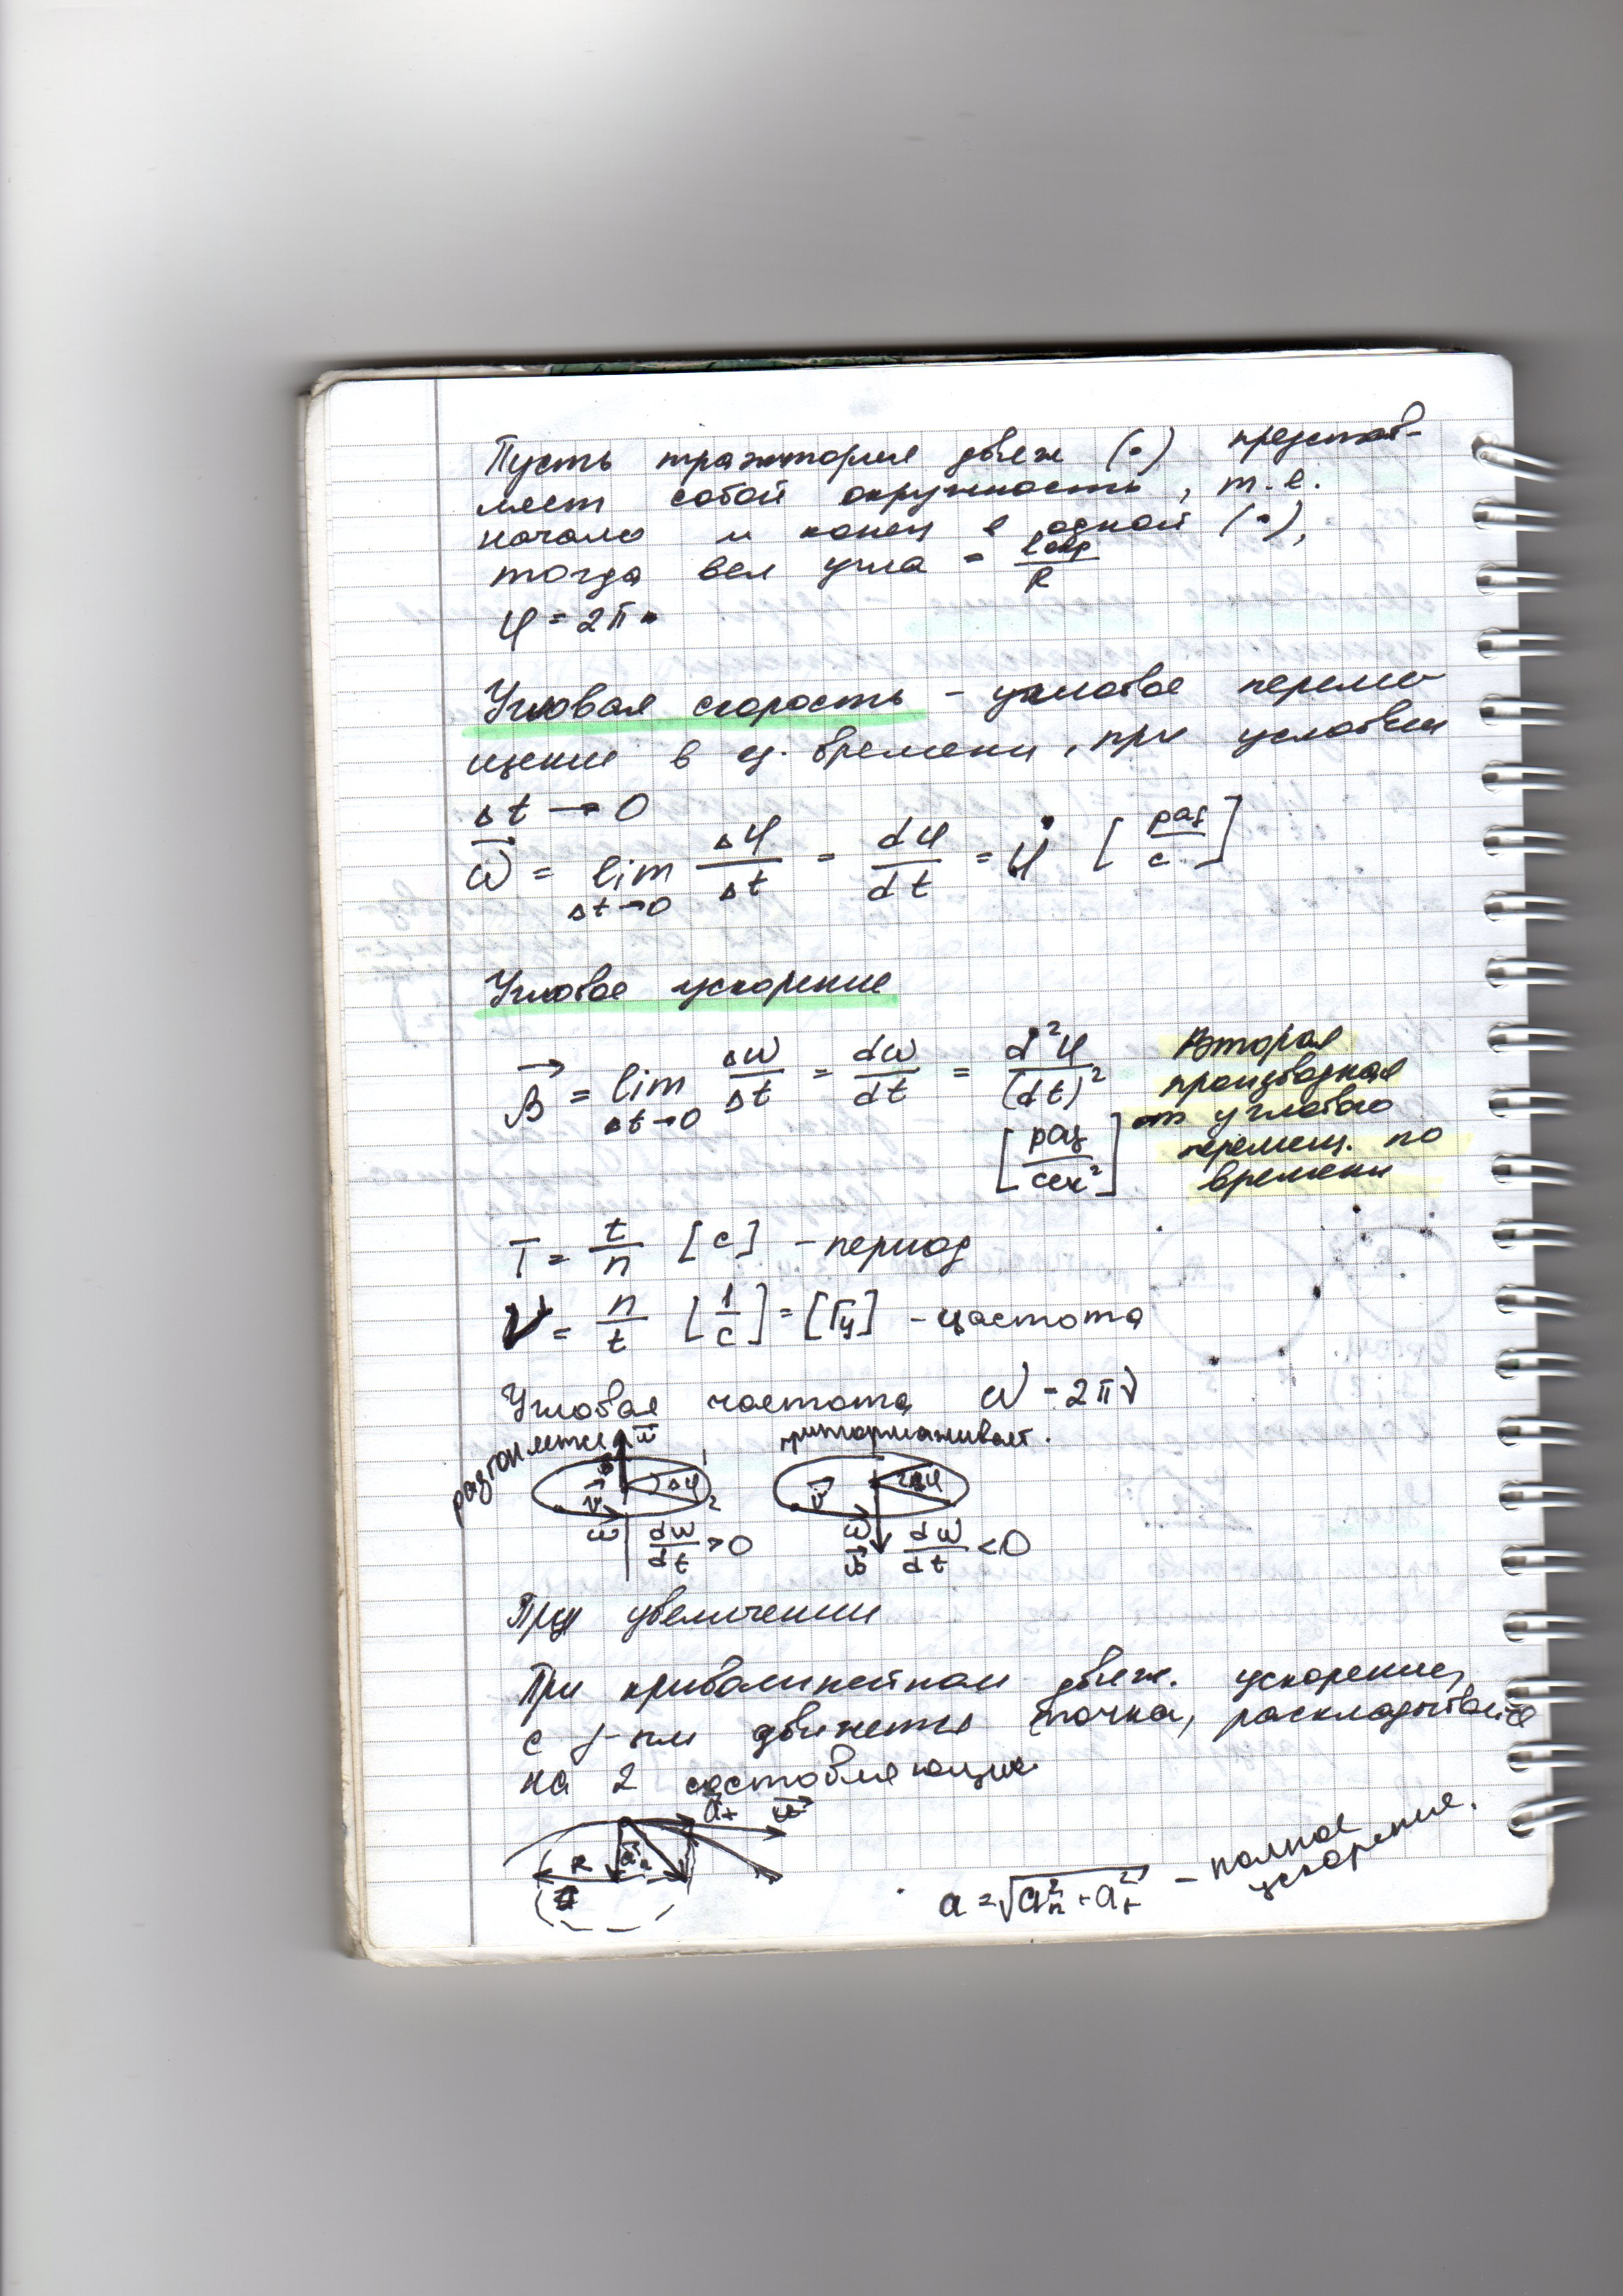 Пусть траектория движ (•) представ-
ляет собой окружность, т.е.
начало и конец в одной (•),
тогда вел угла = lокр/R
φ = 2π
Угловая скорость – угловое переме-
щение в ед. времени, при условии
Δt → 0
ω⃗ = lim Δt→0 Δφ/Δt = dφ/dt = φ̇ [рад/с]
Угловое ускорение
β⃗ = lim Δt→0 Δω/Δt = dω/dt = d²φ/(dt)² [рад/сек²]
Вторая
производная
от углового
перемещ. по
времени
T = t/n [с] – период
ν = n/t [1/с] = [Гц] – частота
Угловая частота ω = 2πν
разгоняется
притормаживает.
ω⃗
β⃗ Δφ 1 2
v⃗
ω⃗ dω/dt > 0
v⃗ Δφ
ω⃗
β⃗ dω/dt < 0
При увеличении
При криволинейном движ. ускорение,
с к-рым движется точка, раскладывается
на 2 составляющих
a⃗τ
R a⃗n
a = √(an² + aτ²) – полное
ускорение.